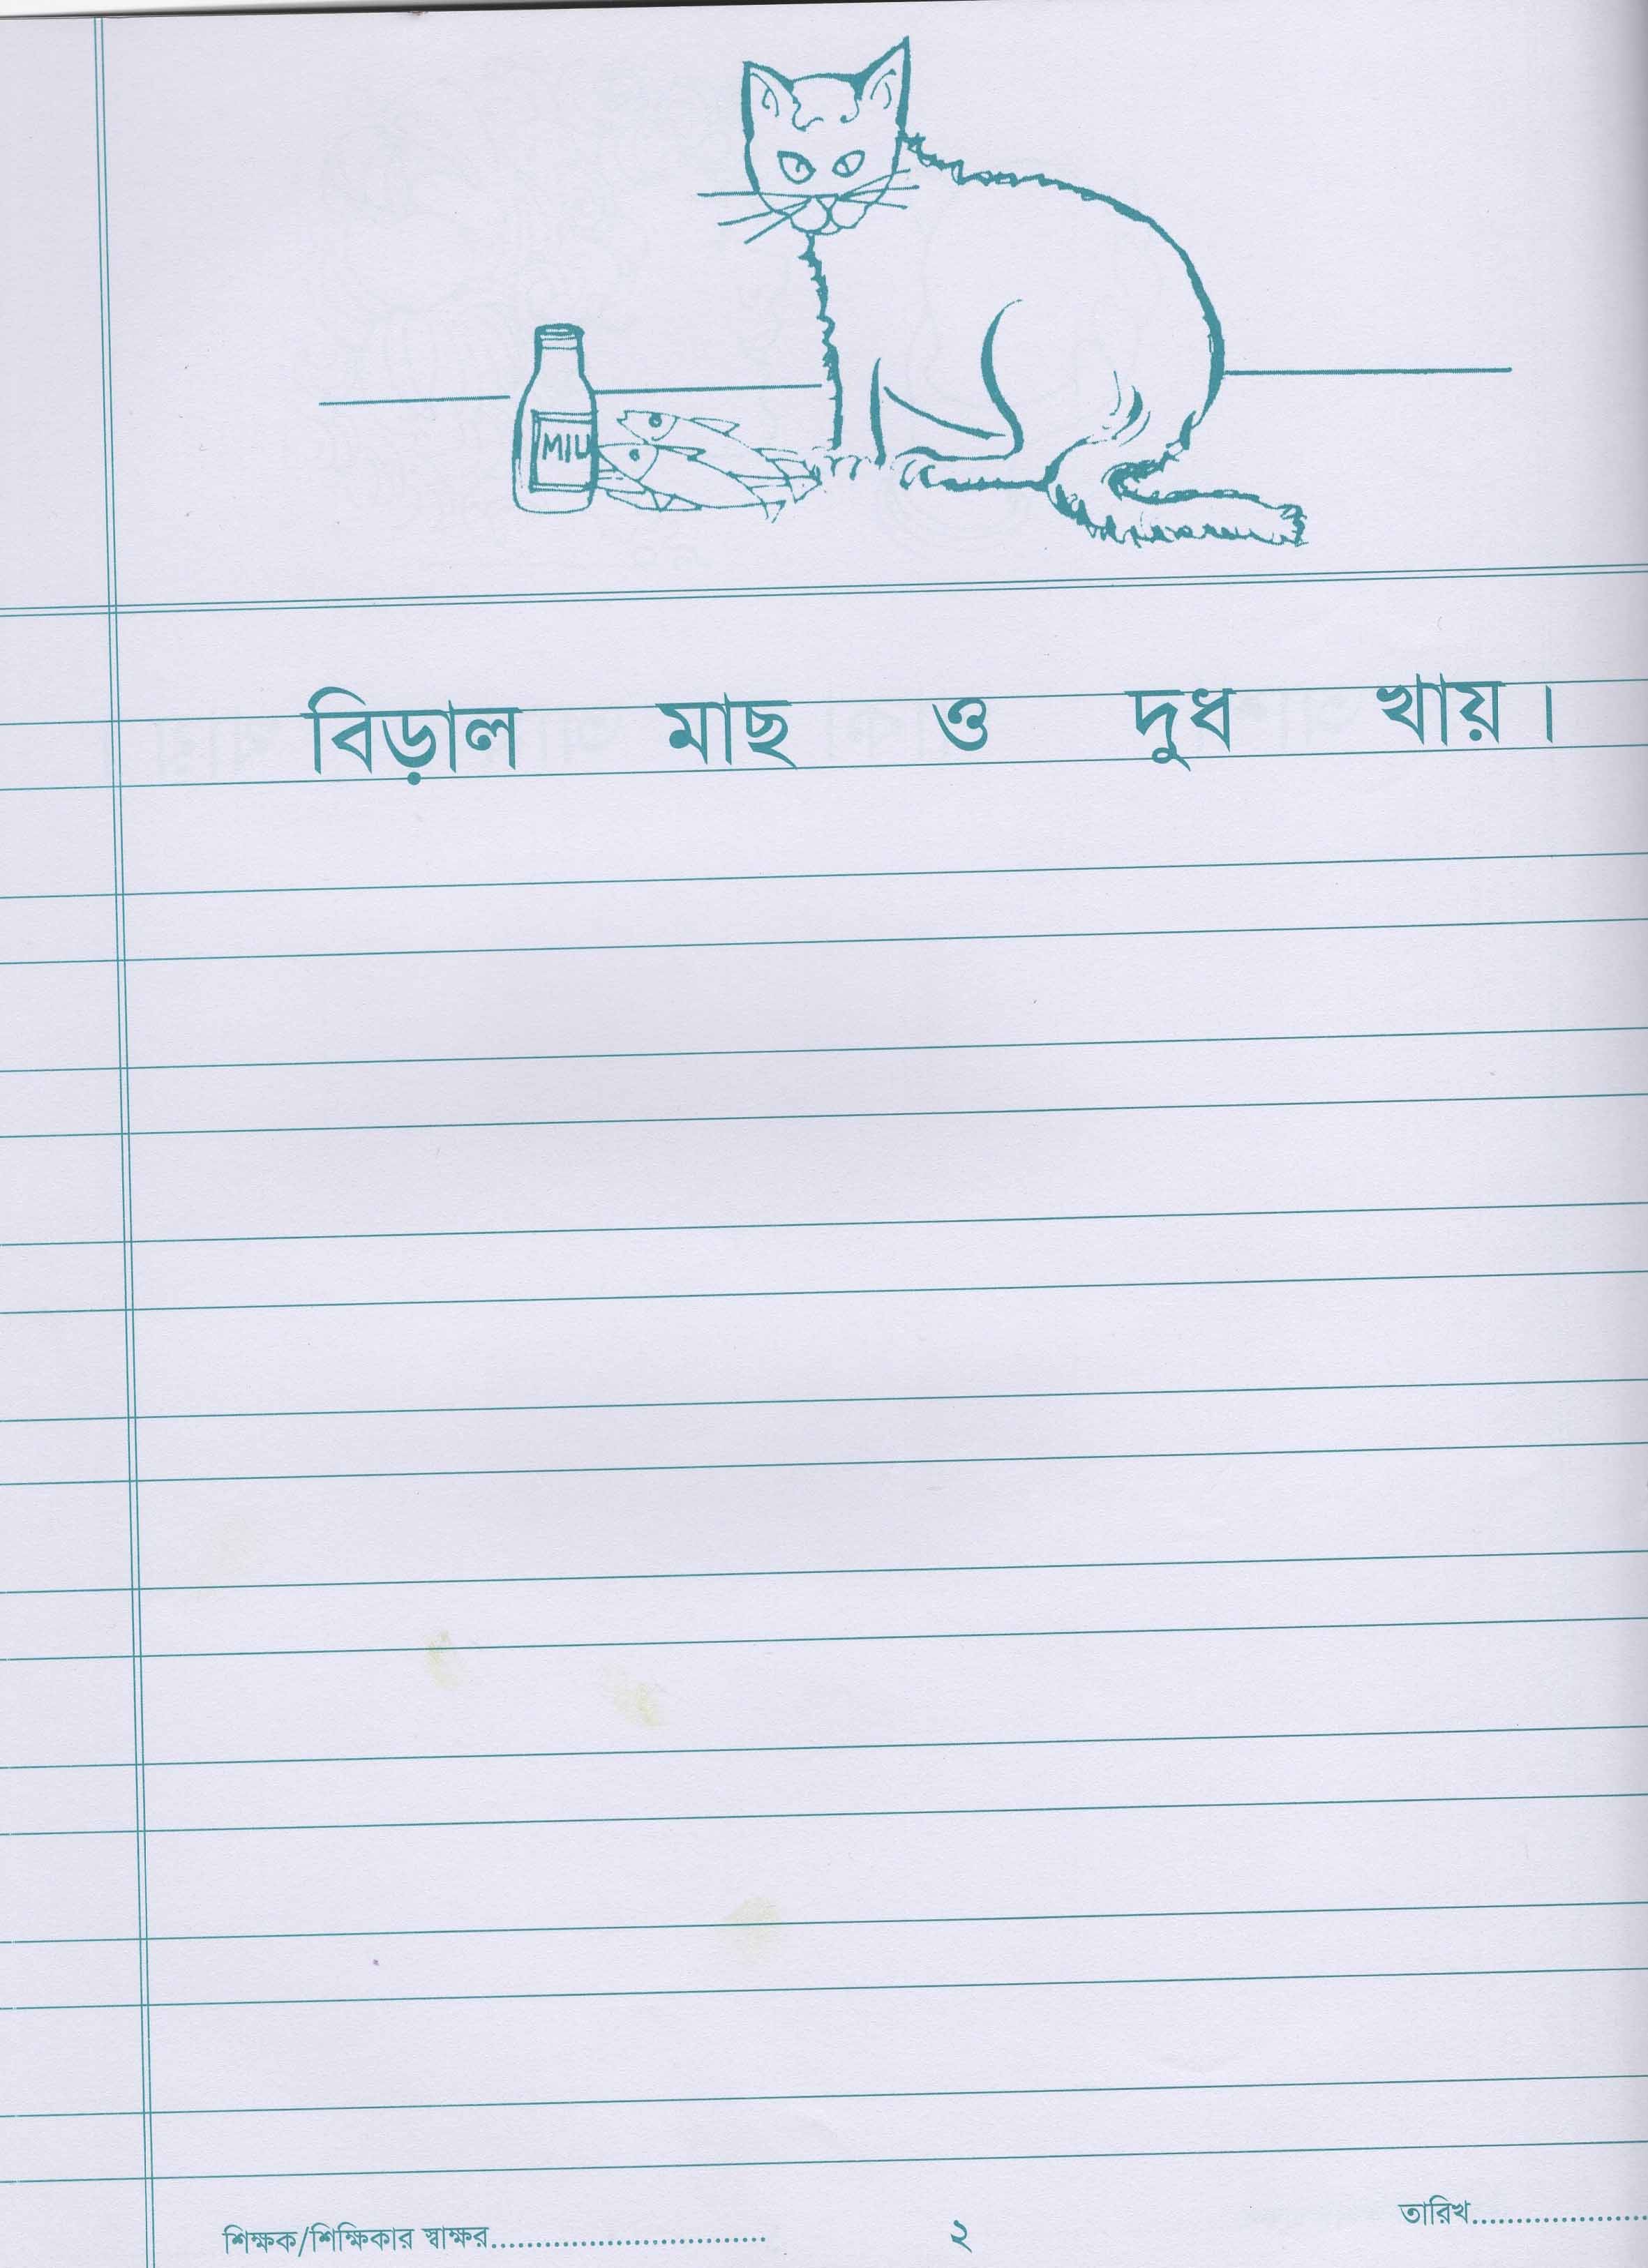 MIL
বিড়াল মাছ ও দুধ খায়।
শিক্ষক/শিক্ষিকার স্বাক্ষর................................
২
তারিখ....................